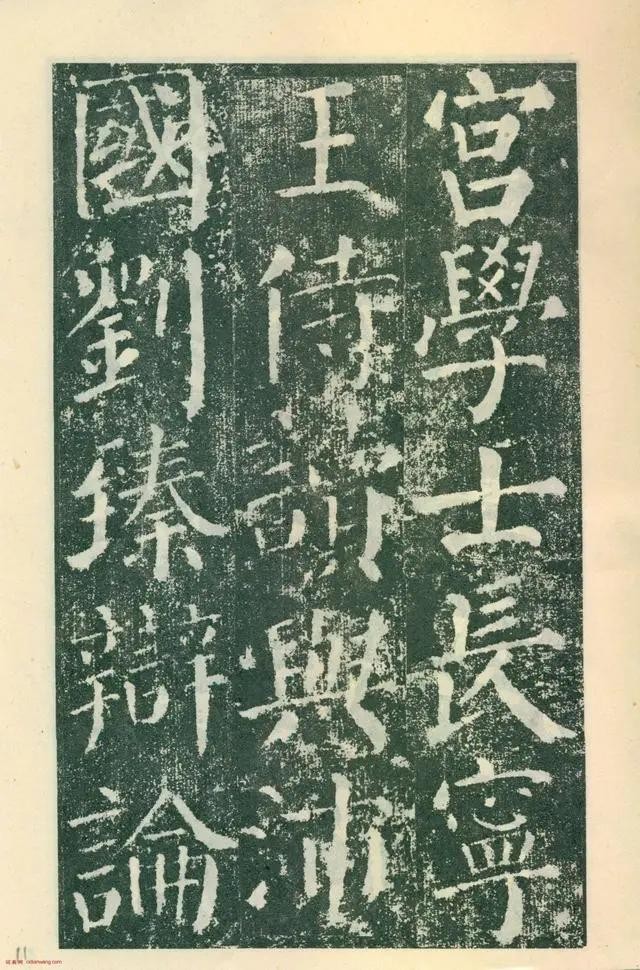 宮學士長寧
王侍讀與沛
國劉臻辯論
11
cidianwang.com